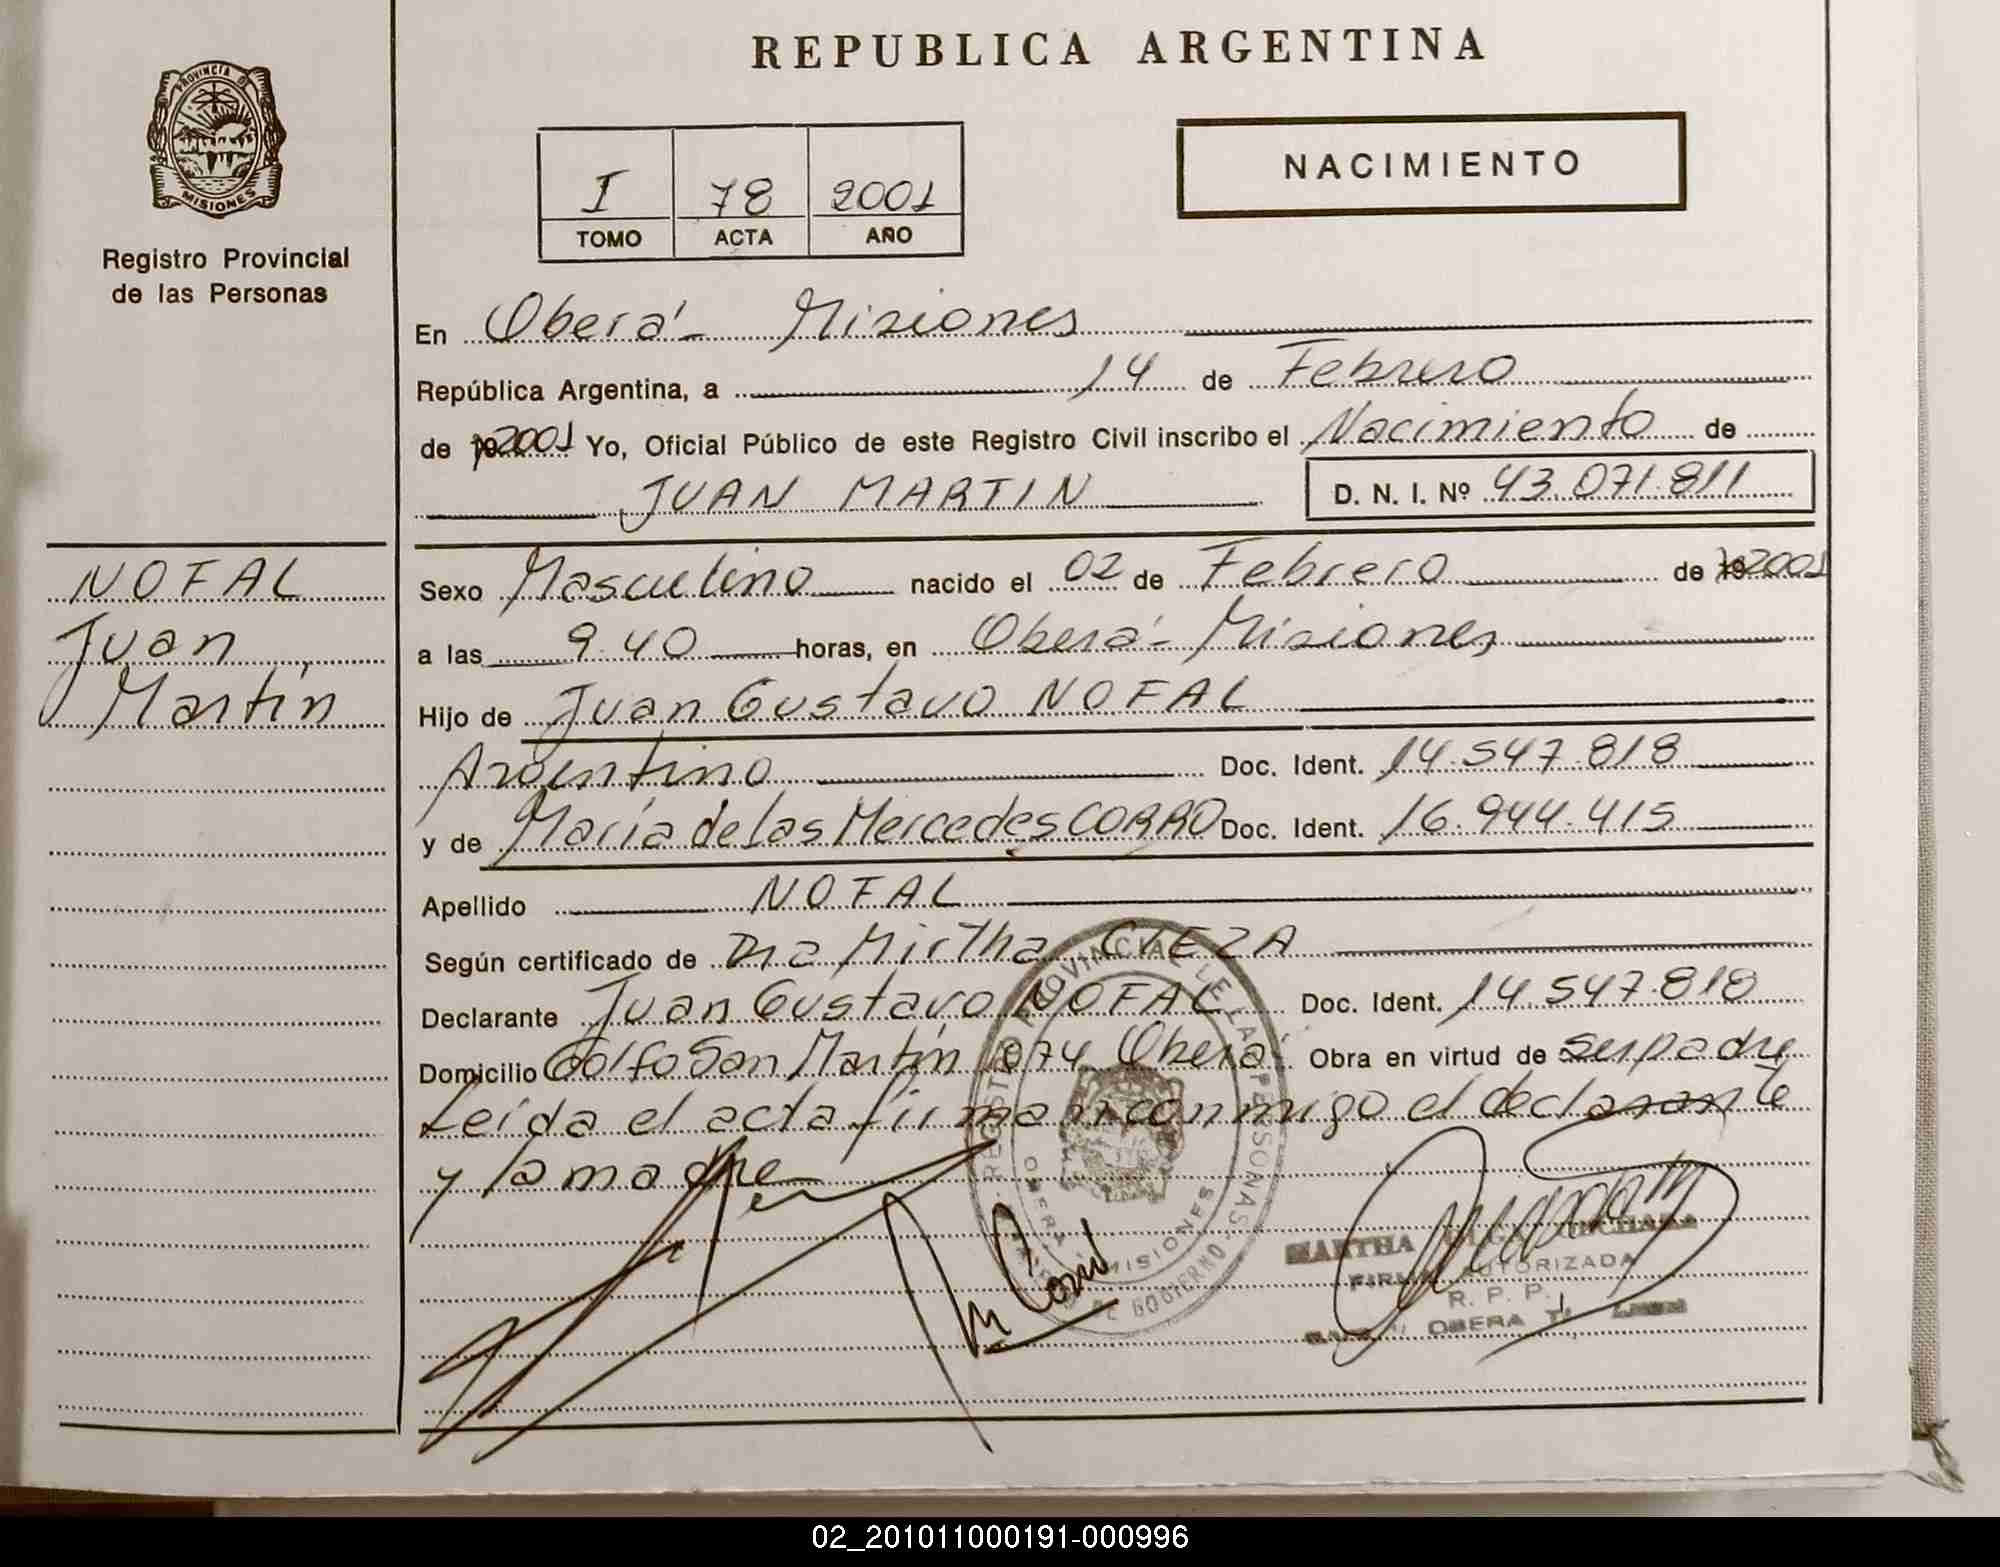 REPUBLICA ARGENTINA
PROVINCIA DE
MISIONES
Registro Provincial
de las Personas
NACIMIENTO
I 78 2001
TOMO ACTA AÑO
En Oberá - Misiones
República Argentina, a 14 de Febrero
de 19 2001 Yo, Oficial Público de este Registro Civil inscribo el Nacimiento de
JUAN MARTIN D. N. I. Nº 43.071.811
NOFAL
Juan
Martín
Sexo Masculino nacido el 02 de Febrero de 19 2001
a las 9.40 horas, en Oberá - Misiones
Hijo de Juan Gustavo NOFAL
Argentino Doc. Ident. 14.547.818
y de María de las Mercedes CORRO Doc. Ident. 16.944.415
Apellido NOFAL
Según certificado de Dra Mirtha CIEZA
Declarante Juan Gustavo NOFAL Doc. Ident. 14.547.818
Domicilio Golfo San Martín 1074 Oberá Obra en virtud de ser padre
Leída el acta firman conmigo el declarante
y la madre
REGISTRO PROVINCIAL DE LAS PERSONAS
OBERA MISIONES
DE GOBIERNO
MARTHA OLGA
FIRMA AUTORIZADA
R. P. P.
OBERA
02_201011000191-000996